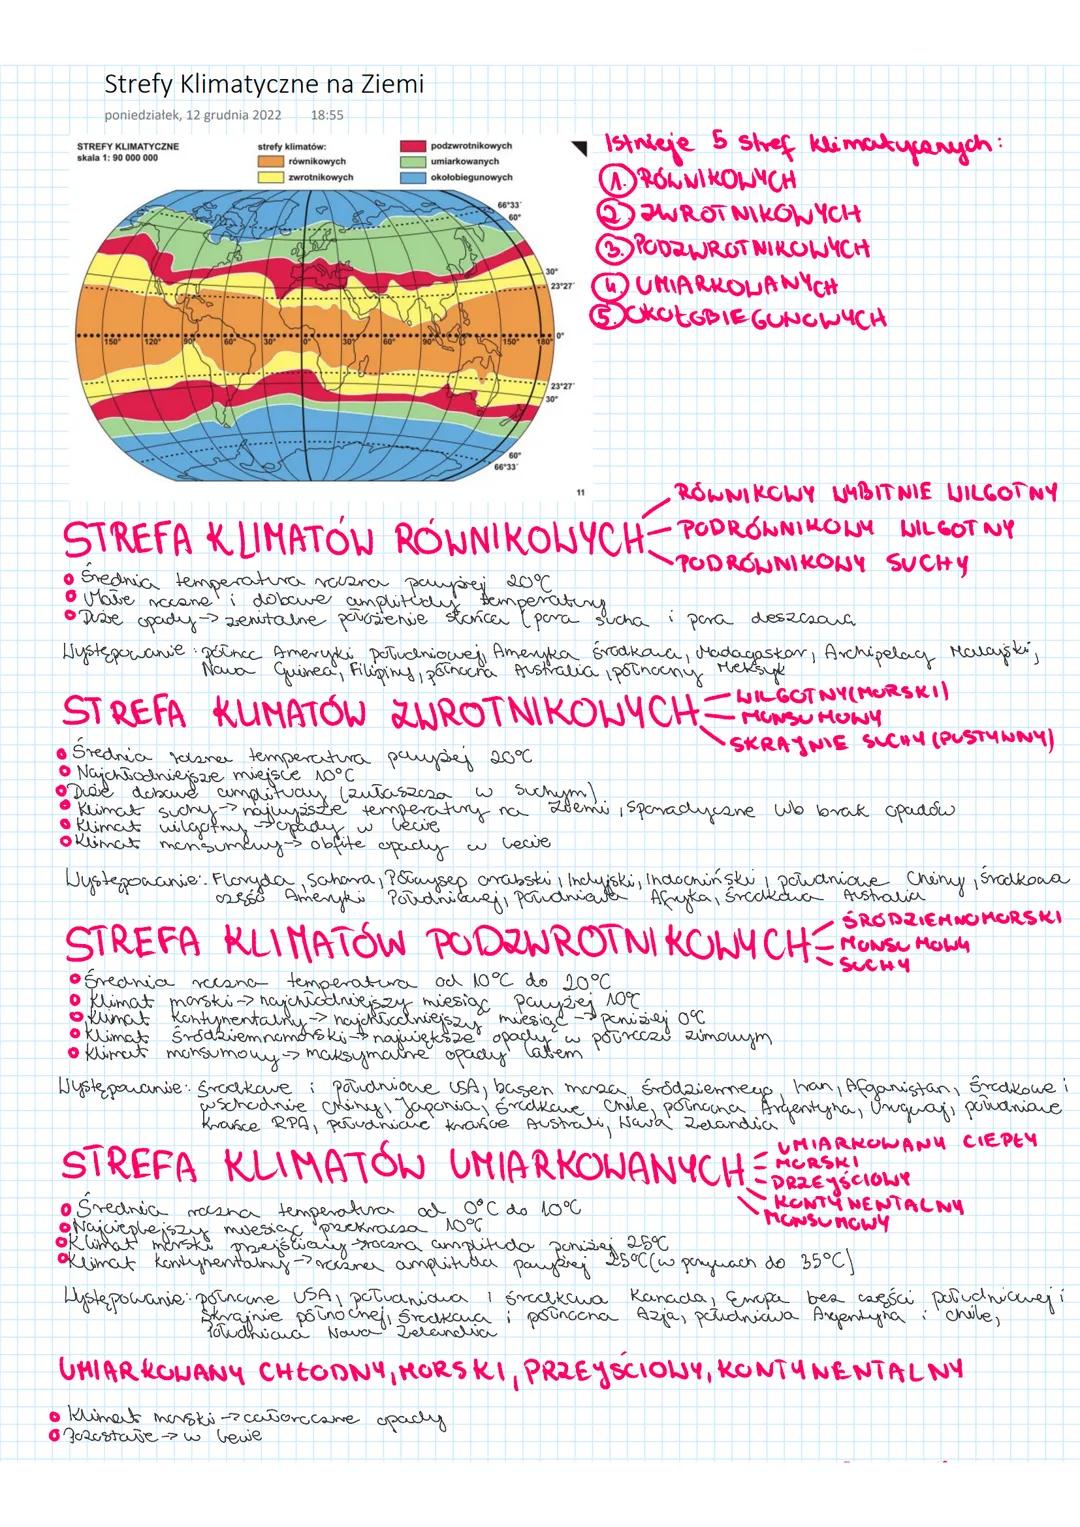 Strefy Klimatyczne na Ziemi
poniedziałek, 12 grudnia 2022 18:55
STREFY KLIMATYCZNE
skala 1: 90 000 000
strefy klimatów:
równikowych
zwrotnikowych
podzwrotnikowych
umiarkowanych
okołobiegunowych
66°33'
60°
30°
23°27'
150° 120° 90° 60° 30° 0° 30° 60° 90° 150° 180° 0°
23°27'
30°
60°
66°33'
11
Istnieje 5 stref klimatycznych:
1. RÓWNIKOWYCH
2. ZWROTNIKOWYCH
3. PODZWROTNIKOWYCH
4. UMIARKOWANYCH
5. OKOŁOBIEGUNOWYCH
STREFA KLIMATÓW RÓWNIKOWYCH
RÓWNIKOWY WYBITNIE WILGOTNY
PODRÓWNIKOWY WILGOTNY
PODRÓWNIKOWY SUCHY
Średnia temperatura roczna powyżej 20°C
Małe roczne i dobowe amplitudy temperatury
Duże opady -> zenitalne położenie słońca (pora sucha i pora deszczowa
Występowanie: północ Ameryki południowej, Ameryka środkowa, Madagaskar, Archipelag Malajski,
Nowa Guinea, Filipiny, północna Australia, północny Meksyk
STREFA KLIMATÓW ZWROTNIKOWYCH
WILGOTNY (MORSKI)
MONSUNOWY
SKRAJNIE SUCHY (PUSTYNNY)
Średnia roczna temperatura powyżej 20°C
Najchłodniejsze miejsce 10°C
Duże dobowe amplitudy (zwłaszcza w suchym)
Klimat suchy -> najwyższe temperatury na Ziemi, sporadyczne lub brak opadów
Klimat wilgotny -> opady w lecie
Klimat monsunowy -> obfite opady w lecie
Występowanie: Floryda, Sahara, Półwysep arabski, Indyjski, Indochiński, południowe Chiny, środkowa
część Ameryki Południowej, południowa Afryka, środkowa Australia
STREFA KLIMATÓW PODZWROTNIKOWYCH
ŚRÓDZIEMNOMORSKI
MONSUNOWY
SUCHY
Średnia roczna temperatura od 10°C do 20°C
Klimat morski -> najchłodniejszy miesiąc powyżej 10°C
Klimat kontynentalny -> najchłodniejszy miesiąc -> poniżej 0°C
Klimat śródziemnomorski -> największe opady w półroczu zimowym
Klimat monsunowy -> maksymalne opady latem
Występowanie: środkowe i południowe USA, basen morza śródziemnego, Iran, Afganistan, środkowe i
wschodnie Chiny, Japonia, środkowe Chile, północna Argentyna, Urugwaj, południowe
krańce RPA, południowe krańce Australi, Nowa Zelandia
STREFA KLIMATÓW UMIARKOWANYCH
UMIARKOWANY CIEPŁY
MORSKI
PRZEJŚCIOWY
KONTYNENTALNY
MONSUNOWY
Średnia roczna temperatura od 0°C do 10°C
Najcieplejszy miesiąc przekracza 10°C
Klimat morski przejściowy -> roczna amplituda poniżej 25°C
Klimat kontynentalny -> roczna amplituda powyżej 25°C (w porywach do 35°C)
Występowanie: północne USA, południowa i środkowa Kanada, Europa bez części południowej i
skrajnie północnej, środkowa i północna Azja, południowa Argentyna i Chile,
Południowa Nowa Zelandia
UMIARKOWANY CHŁODNY, MORSKI, PRZEJŚCIOWY, KONTYNENTALNY
Klimat morski -> całoroczne opady
Pozostałe -> w lecie